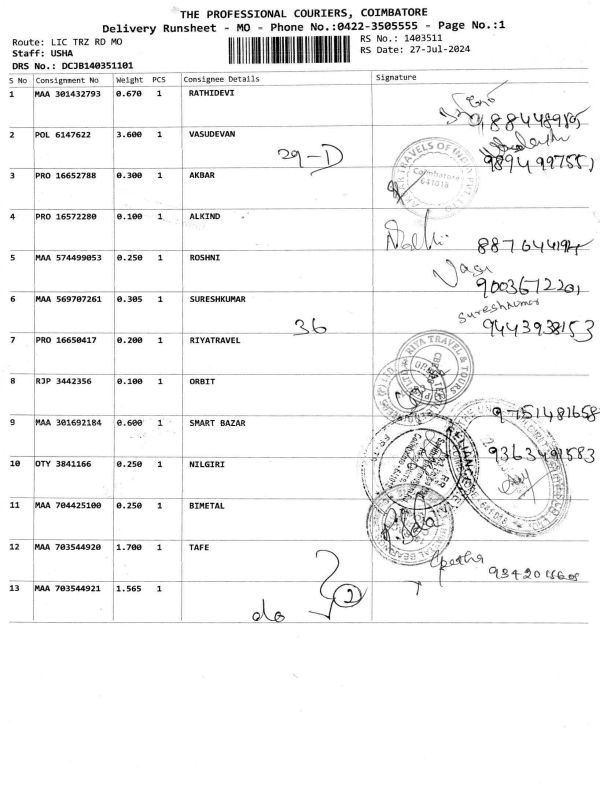 THE PROFESSIONAL COURIERS, COIMBATORE
Delivery Runsheet - MO - Phone No.:0422-3505555 - Page No.:1
Route: LIC TRZ RD MO
Staff: USHA
DRS No.: DCJB140351101
RS No.: 1403511
RS Date: 27-Jul-2024
S No Consignment No Weight PCS Consignee Details Signature
1 MAA 301432793 0.670 1 RATHIDEVI
2 POL 6147622 3.600 1 VASUDEVAN
29-D 9894997551
3 PRO 16652788 0.300 1 AKBAR
AKBAR TRAVELS OF INDIA PVT LTD
Coimbatore
641018
4 PRO 16572280 0.100 1 ALKIND
5 MAA 574499053 0.250 1 ROSHNI
Vasi
9003672201
6 MAA 569707261 0.305 1 SURESHKUMAR
Sureshkumar
36 9443938153
7 PRO 16650417 0.200 1 RIYATRAVEL
RIYA TRAVEL & TOURS
8 RJP 3442356 0.100 1 ORBIT
9751481658
9 MAA 301692184 0.600 1 SMART BAZAR
RELIANCE RETAIL
9363491583
10 OTY 3841166 0.250 1 NILGIRI
11 MAA 704425100 0.250 1 BIMETAL
12 MAA 703544920 1.700 1 TAFE
13 MAA 703544921 1.565 1
do 2